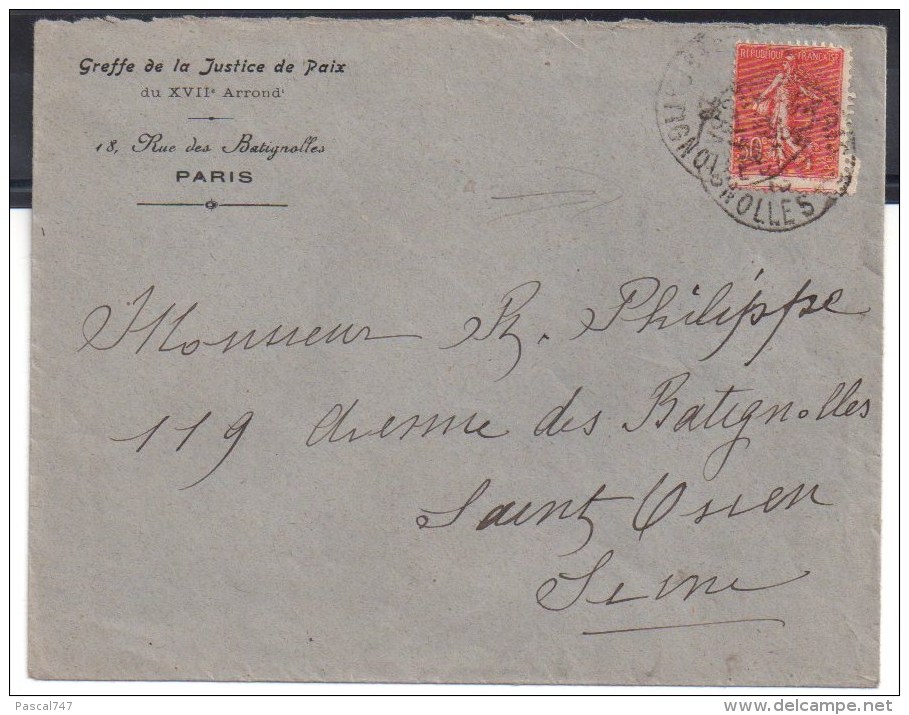 Greffe de la Justice de Paix
du XVIIe Arrondt
18, Rue des Batignolles
PARIS
REPUBLIQUE FRANÇAISE
50c
Monsieur R. Philippe
119 Avenue des Batignolles
Saint Ouen
Seine
Pascal747
delcampe.net